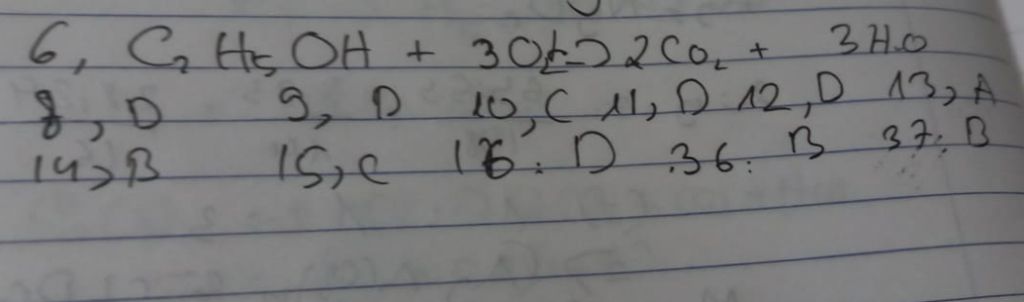 6, C₂H₅OH + 3O₂ => 2CO₂ + 3H₂O
8, D 9, D 10, C 11, D 12, D 13, A
14, B 15, C 16: D 36: B 37: B